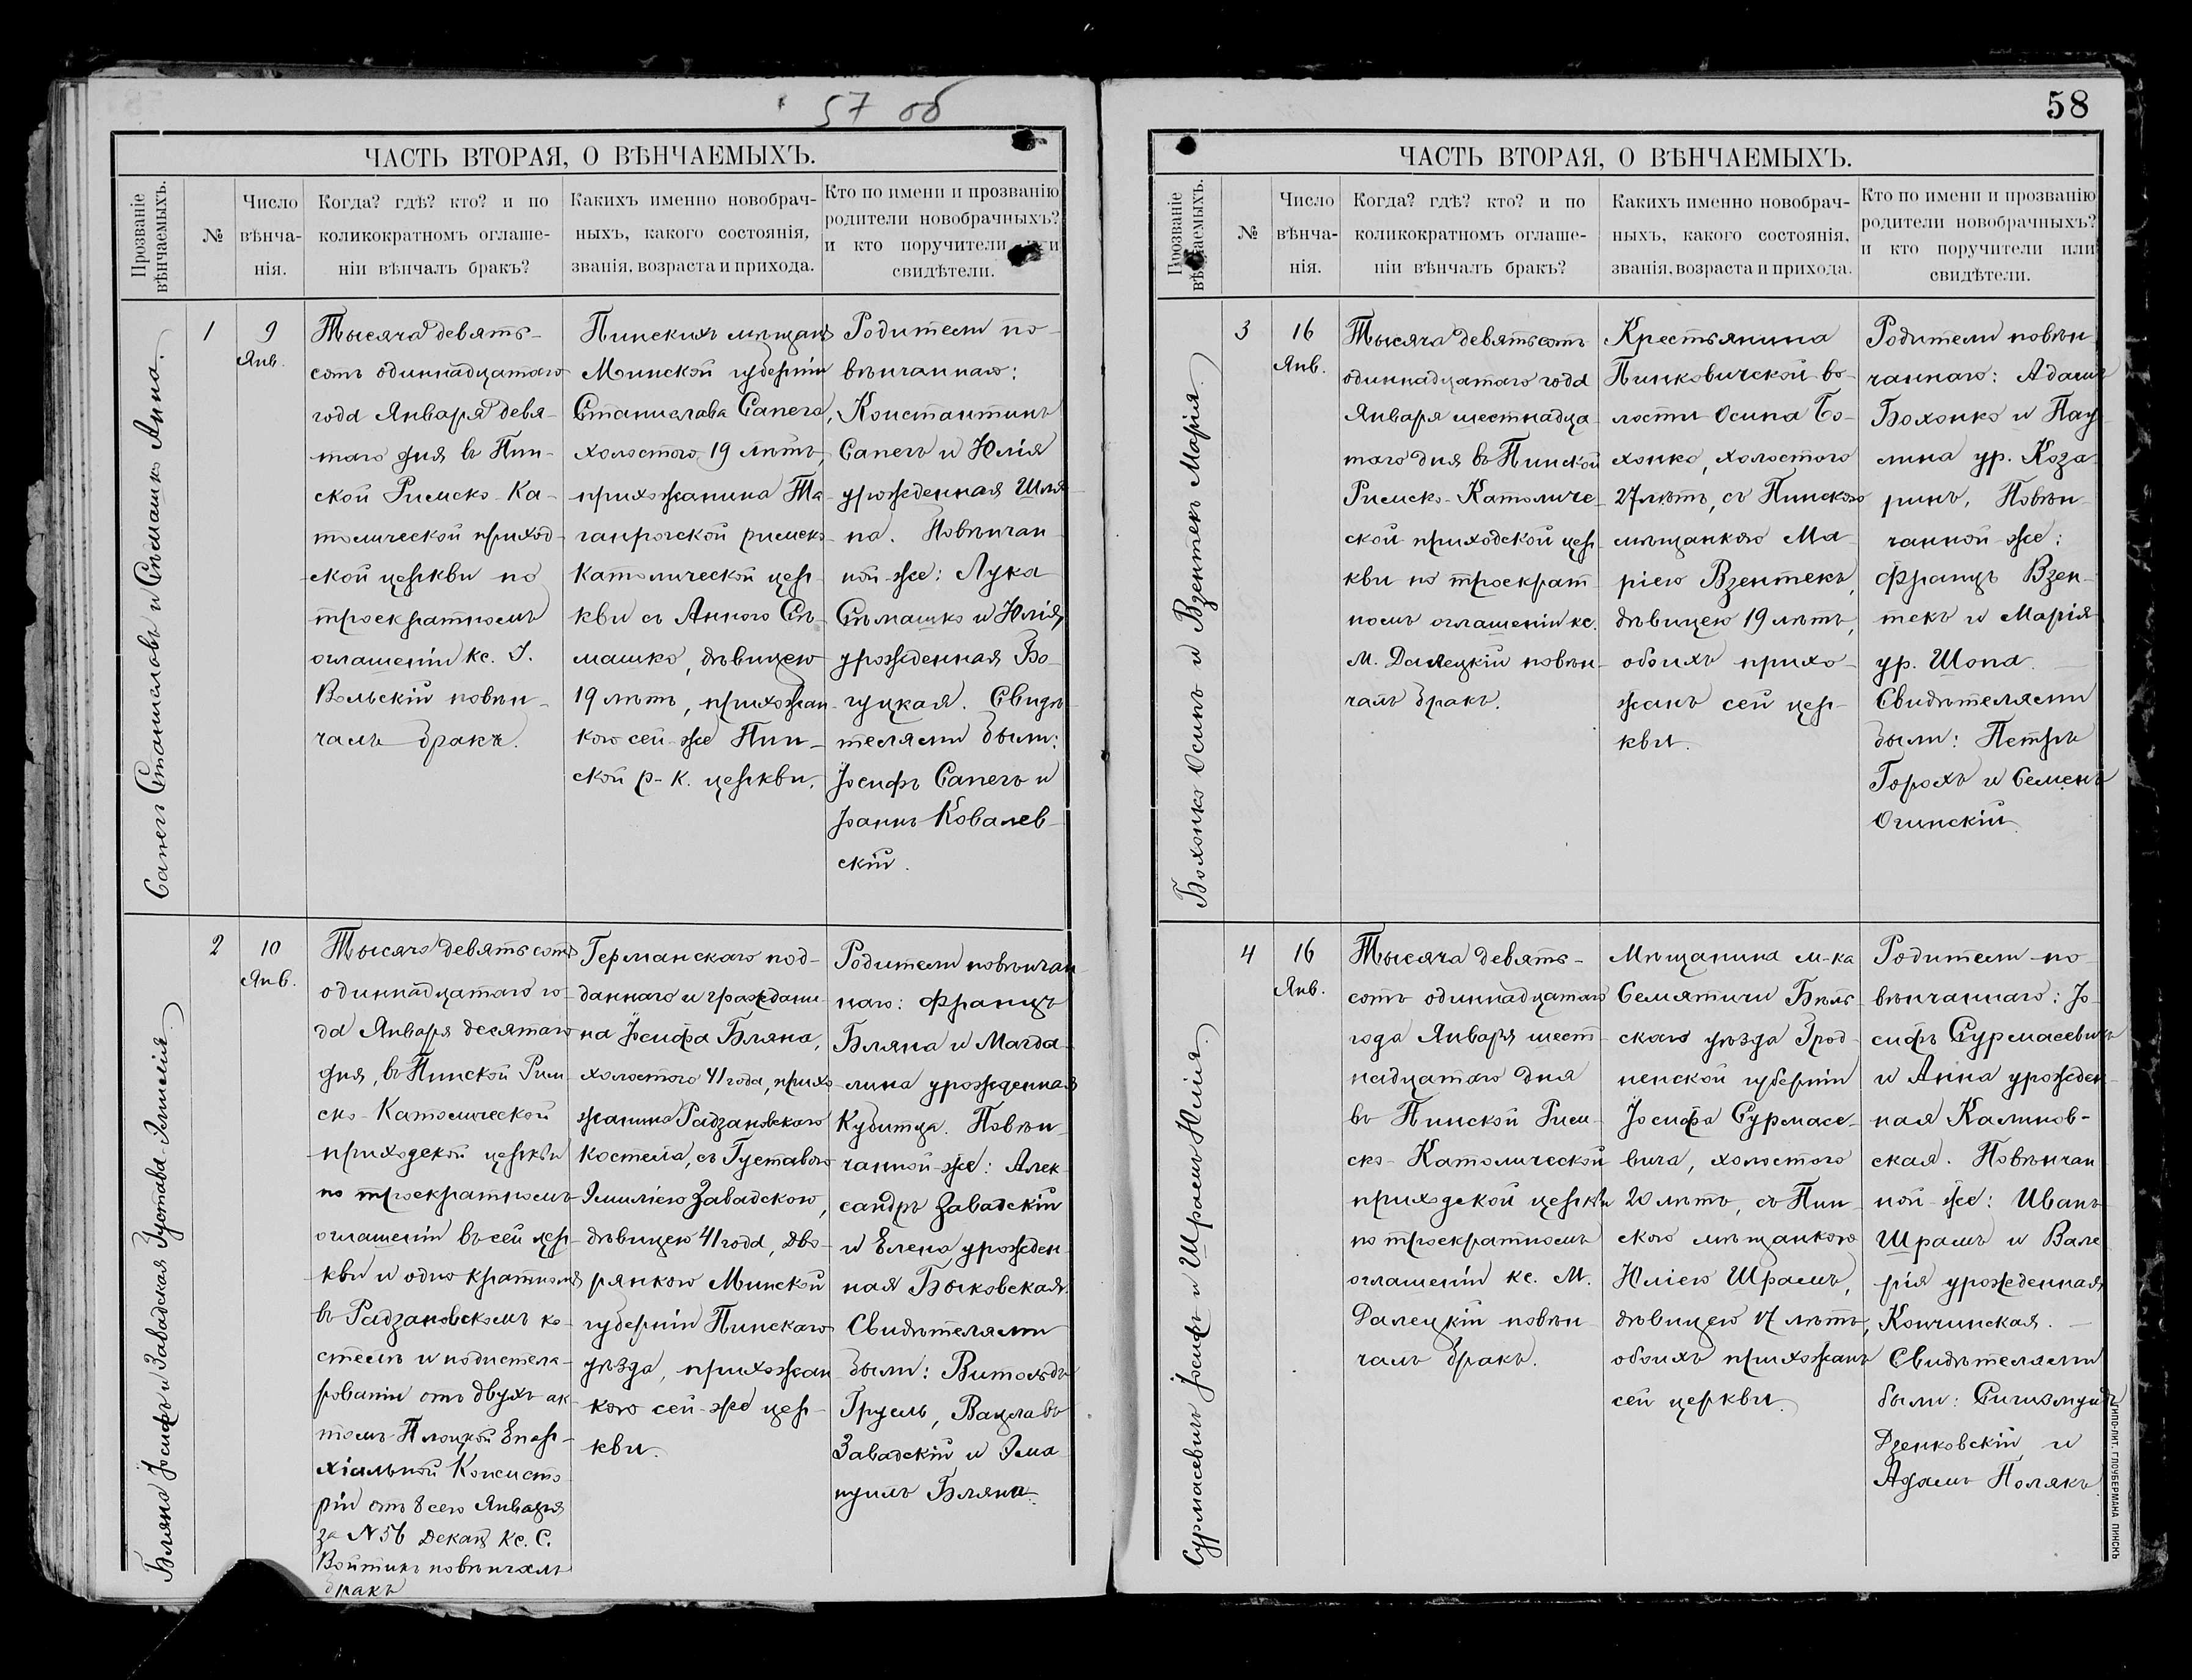 57 об
ЧАСТЬ ВТОРАЯ, О ВѢНЧАЕМЫХЪ.
Прозваніе
вѣнчаемыхъ.
№
Число
вѣнча-
нія.
Когда? гдѣ? кто? и по
коликократномъ оглаше-
ніи вѣнчалъ бракъ?
Какихъ именно новобрач-
ныхъ, какого состоянія,
званія, возраста и прихода.
Кто по имени и прозванію
родители новобрачныхъ?
и кто поручители или
свидѣтели.
Сапегъ Станиславъ и Сѣмашко Анна.
1
9
Янв.
Тысяча девять-
сотъ одиннадцатаго
года Января девя-
таго дня въ Пин-
ской Римско-Ка-
толической приход-
ской церкви по
троекратномъ
оглашеніи кс. I.
Вольскій повѣн-
чалъ бракъ.
Пинскихъ мѣщанъ
Минской губерніи
Станислава Сапега,
холостого 19 лѣтъ,
прихожанина Та-
ганрогской римско-
католической цер-
кви съ Анною Сѣ-
машко, дѣвицею
19 лѣтъ, прихожан-
кою сей-же Пин-
ской р-к. церкви.
Родители по-
вѣнчаннаго:
Константинъ
Сапегъ и Юлія
урожденная Шля-
па. Повѣнчан-
ной-же: Лука
Сѣмашко и Юлія,
урожденная Бо-
гуцкая. Свидѣ-
телями были:
Іосифъ Сапегъ и
Іоаннъ Ковалев-
скій.
Бляна Іосифъ и Завадская Густава-Эмилія.
2
10
Янв.
Тысяча девятьсотъ
одиннадцатаго го-
да Января десятаго
дня, въ Пинской Рим-
ско-Католической
приходской церкви
по троекратномъ
оглашеніи въ сей цер-
кви и однократномъ
въ Радзановскомъ ко-
стелѣ и
отъ двухъ ак-
томъ Плоцкой Епар-
хіальной Консисто-
ріи отъ 8 сего Января
за № 56 Декан кс. С.
Войтикъ повѣнчалъ
бракъ
Германскаго под-
даннаго и граждани-
на Іосифа Бляна,
холостого 41 года, прихо-
жанина Радзановского
костела, съ Густавою
Эмиліею Завадскою,
дѣвицею 41 года, дво-
рянкою Минской
губерніи Пинскаго
уѣзда, прихожан-
кою сей-же цер-
кви.
Родители повѣнчан-
наго: Францъ
Бляна и Магда-
лина урожденная
Кубитца. Повѣн-
чанной-же: Алек-
сандръ Завадскій
и Елена урожден-
ная Быковская.
Свидѣтелями
были: Витольдъ
Грусль, Вацлавъ
Завадскій и Эма-
нуилъ Бляна.
58
ЧАСТЬ ВТОРАЯ, О ВѢНЧАЕМЫХЪ.
Прозваніе
вѣнчаемыхъ.
№
Число
вѣнча-
нія.
Когда? гдѣ? кто? и по
коликократномъ оглаше-
ніи вѣнчалъ бракъ?
Какихъ именно новобрач-
ныхъ, какого состоянія,
званія, возраста и прихода.
Кто по имени и прозванію
родители новобрачныхъ?
и кто поручители или
свидѣтели.
Бохонко Осипъ и Взентекъ Марія.
3
16
Янв.
Тысяча девятьсотъ
одиннадцатаго года
Января шестнадца-
таго дня въ Пинской
Римско-Католиче-
ской приходской цер-
кви по троекрат-
номъ оглашеніи кс.
М. Далецкій повѣн-
чалъ бракъ.
Крестьянина
Пинковичской во-
лости Осипа Бо-
хонко, холостого
27 лѣтъ, съ Пинскою
мѣщанкою Ма-
ріею Взентекъ,
дѣвицею 19 лѣтъ,
обоихъ прихо-
жанъ сей цер-
кви.
Родители повѣн-
чаннаго: Адамъ
Бохонко и Пау-
лина ур. Коза-
ринъ. Повѣн-
чанной-же:
Францъ Взен-
текъ и Марія
ур. Шопа.
Свидѣтелями
были: Петръ
Горохъ и Семенъ
Огинскій.
Сурмасевичъ Іосифъ и Шрамъ Юлія.
4
16
Янв.
Тысяча девять-
сотъ одиннадцатаго
года Января шест-
надцатаго дня
въ Пинской Рим-
ско-Католической
приходской церкви
по троекратномъ
оглашеніи кс. М.
Далецкій повѣн-
чалъ бракъ.
Мѣщанина м-ка
Семятичи Бѣль-
скаго уѣзда Грод-
ненской губерніи
Іосифа Сурмасе-
вича, холостого
20 лѣтъ, съ Пин-
скою мѣщанкою
Юліею Шрамъ,
дѣвицею 17 лѣтъ,
обоихъ прихожанъ
сей церкви.
Родители по-
вѣнчаннаго: Іо-
сифъ Сурмасевичъ
и Анна урожден-
ная Калинов-
ская. Повѣнчан-
ной-же: Иванъ
Шрамъ и Вале-
рія урожденная
Кончинская.
Свидѣтелями
были: Сигизмундъ
Дзенковскій и
Адамъ Полякъ.
ТИПО-ЛИТ. ГЛОУБЕРМАНА ПИНСКЪ